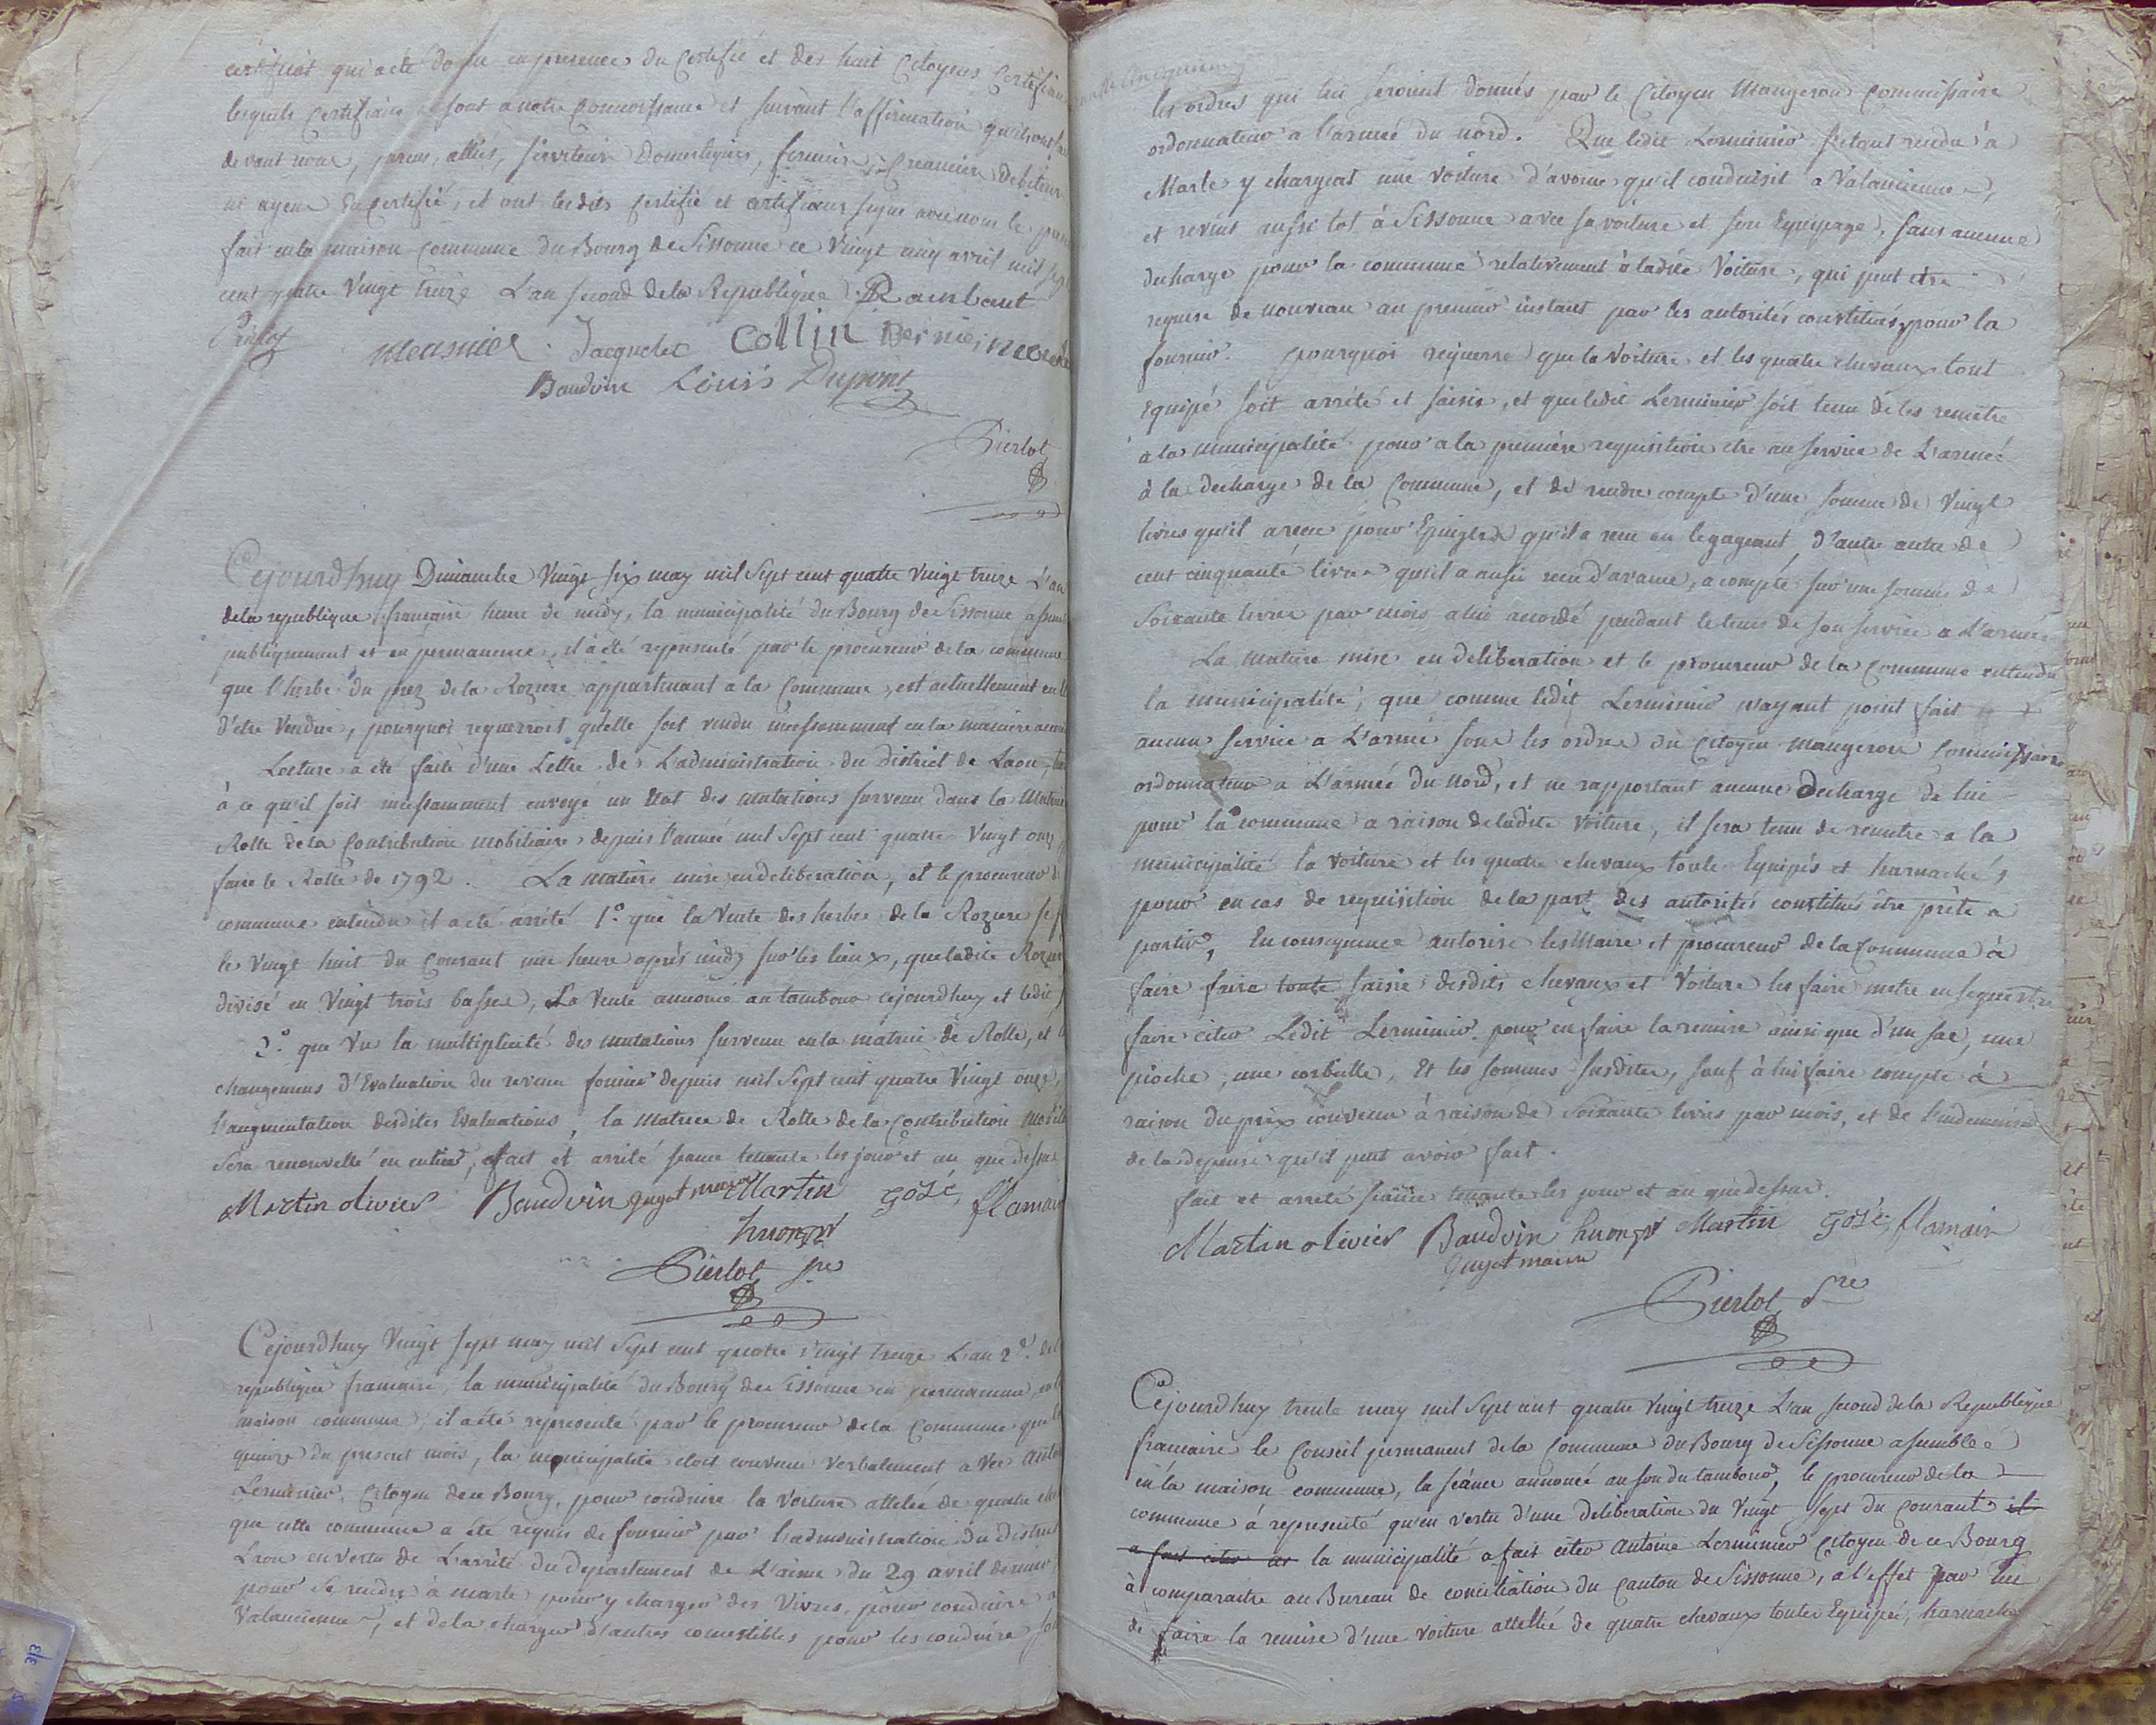 certificat qui a été donné en presence du Certifié et des huit Citoyens Certifians
lesquels Certifians sont a notre Connoissance et suivant l'affirmation qu'ils ont
devant nous, parens, alliés, serviteurs Domestiques, fermiers, Creanciers Debiteurs
ni agens du certifié, et ont lesdits Certifié et certifians signé avec nous le
fait en la maison Commune du Bourg de Sissonne ce Vingt cinq avril mil sept
cent quatre Vingt treize L'an second de la Republique
Measnier Jacquelet Collin Bernier
Baudoin Louis Dupont
Pierlot
Cejourdhuy Dimanche Vingt six may mil Sept cent quatre Vingt treize L'an
de la republique françoise heure de midy, la municipalité du Bourg de Sissonne
publiquement et en permanence, il a été representé par le procureur de la commune
que l'herbe du prez de la Roziere appartenant a la Commune, est actuellement
d'être Vendue, pourquoi requerroit quelle soit vendu incessamment en la maniere
Lecture a été faite d'une Lettre de L'administration du District de Laon,
à ce qu'il soit incessamment envoyé un Etat des mutations survenu dans la Matrice
Rolle de la Contribution mobiliaire depuis l'année mil Sept cent quatre Vingt onze
faire le Rolle de 1792. La matiere mise en deliberation, et le procureur de
commune entendu il a été arrêté 1.º que la Vente des herbes de la Roziere se
le Vingt huit du Courant une heure après midy sur les lieux, que ladite Roziere
divisé en Vingt trois basses, La Vente annoncé au tambour cejourdhuy et ledit
2.º que Vu la multiplicité des mutations survenu en la matrice de Rolle, et
changemens d'Evaluation du revenu foncier depuis mil Sept cent quatre Vingt onze,
l'augmentation desdites Evaluations, la Matrice de Rolle de la Contribution
Sera renouvellé en entier, fait et arrêté séance tenante les jour et an que dessus
Martin olivier Baudoin guyot maire Martin gosé flamain
huon pr
Pierlot Sre
Cejourdhuy Vingt sept may mil Sept cent quatre Vingt treize L'an 2e. de la
republique francaise, la municipalité du Bourg de Sissonne en permanence,
maison commune, il a été representé par le procureur de la Commune que
quinze du present mois, la municipalité etoit convenu verbalement avec
Lerminier, Citoyen de ce Bourg, pour conduire la Voiture attelée de quatre
que cette commune a été requis de fournir par l'administration du District
Laon en vertu de L'arrêté du departement de L'aisne du 29 avril dernier,
pour se rendre à marle pour y charger des Vivres, pour conduire a
Valancienne, et de la charger d'autres comestibles pour les conduire
les ordres qui lui seroient donnés par le Citoyen Maugeron Commissaire
ordonnateur a l'armée du nord. Que ledit Lerminier s'etant rendu à
Marle y chargeat une voiture d'avoine qu'il conduisit a Valancienne,
et revint aussi tot à Sissonne avec sa voiture et son Equipage, sans aucune
decharge pour la commune relativement à ladite Voiture, qui peut etre
requise de nouveau au premier instant par les autorités constitués pour la
fournir. pourquoi requerre que la voiture et les quatre chevaux tout
Equipé soit arrêté et saisis, et que ledit Lerminier soit tenu de les remetre
à la municipalité pour a la première requisition etre au service de L'armée
à la decharge de la Commune, et de rendre compte d'une somme de Vingt
livres qu'il a reçu pour Epingles qu'il a reçu en le gageant, d'autre autre de
cent cinquante livres qu'il a aussi recu d'avance, a compte sur une somme de
Soixante livres par mois a lui accordé pendant le tems de son service a L'armée
La matiere mise en deliberation et le procureur de la Commune entendu
la municipalité, que comme ledit Lerminier n'ayant point fait
aucun service a L'armé sous les ordres du Citoyen Maugeron Commissaire
ordonnateur a L'armée du Nord, et ne rapportant aucune Decharge de lui
pour la commune a raison de ladite Voiture, il sera tenu de remettre a la
municipalité la voiture et les quatre chevaux toute Equipés et harnachés
pour en cas de requisition de la part des autorités constitués être prete a
partir, En consequence autorise les Maire et procureur de la Commune à
faire faire toute saisie desdits chevaux et Voiture les faire metre en sequestre
faire citer Ledit Lerminier pour en faire la remise ainsi que d'un sac, une
pioche, une corbeille, Et les sommes susdites, sauf à lui faire compte à
raison du prix convenu à raison de Soixante livres par mois, et de l'indemniser
de la depense qu'il peut avoir fait.
fait et arreté séance tenante les jour et an que dessus.
Martin olivier Baudoin huon pr Martin gosé flamain
guyot maire
Pierlot Sre
Cejourdhuy trente may mil Sept cent quatre Vingt treize L'an second de la Republique
francaise le Conseil permanent de la Commune du Bourg de Sissonne assemblée
en la maison commune, la séance annoncé au son du tambour, le procureur de la
commune à representé qu'en vertu d'une deliberation du Vingt Sept du Courant il
a fait citer la municipalité a fait citer Antoine Lerminier Citoyen de ce Bourg
à comparaitre au Bureau de conciliation du Canton de Sissonne, a l'effet par lui
de faire la remise d'une voiture attelée de quatre chevaux toute Equipé, harnaché